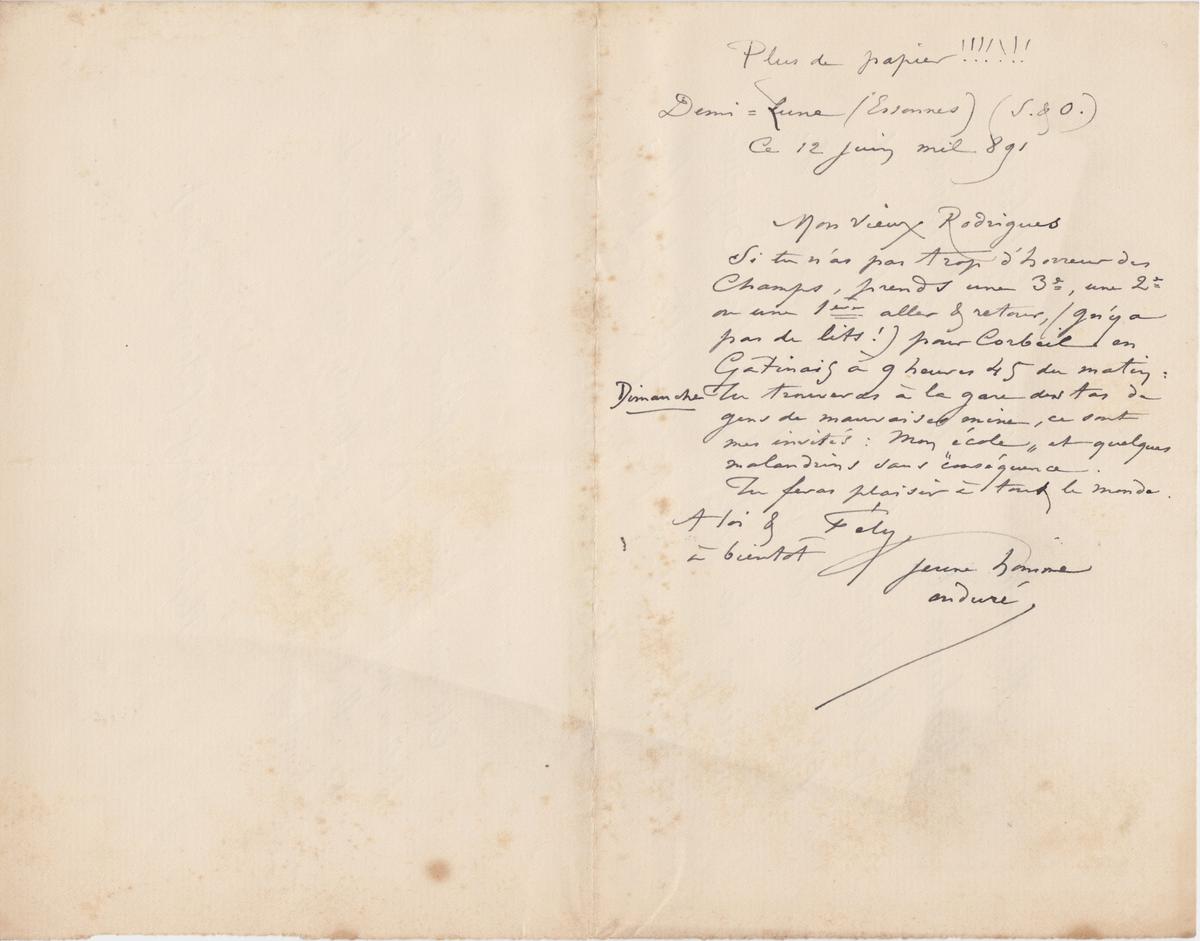 Plus de papier !!!!!!!
Demi=Lune (Essonnes) (S. & O.)
Ce 12 juin mil 891
Mon vieux Rodrigues
Si tu n'as pas trop d'horreur des
Champs, prends une 3e, une 2e
ou une 1ère aller & retour, (qu'y a
pas de lits!) pour Corbeil en
Gatinais à 9 heures 45 du matin:
Dimanche Tu trouveras à la gare des tas de
gens de mauvaises mine, ce sont
mes invités: Mon école " et quelques
malandrins sans "conséquence.
Tu feras plaisir à tout le monde.
A toi & Fély
à bientôt
jeune homme
enduré